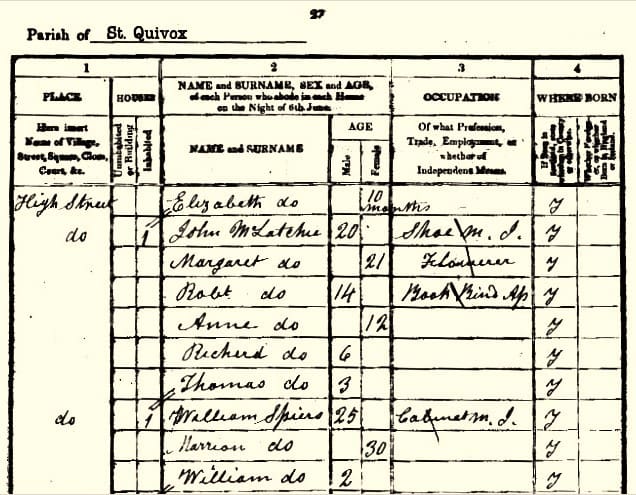 27
Parish of St. Quivox
1 2 3 4
PLACE HOUSES NAME and SURNAME, SEX and AGE, of each Person who abode in each House on the Night of 6th June. OCCUPATION WHERE BORN
Here insert Name of Village, Street, Square, Close, Court, &c. Uninhabited or Building Inhabited NAME and SURNAME AGE Male Female Of what Profession, Trade, Employment, or whether of Independent Means.
High Street Elizabeth do 10 months Y
do 1 John McLatchie 20 Shoe m. J. Y
Margaret do 21 Flowerer Y
Robt do 14 Book Bind Ap Y
Anne do 12 Y
Richerd do 6 Y
Thomas do 3 Y
do 1 William Spiers 25 Cabinet m. J. Y
Marrion do 30 Y
William do 2 Y